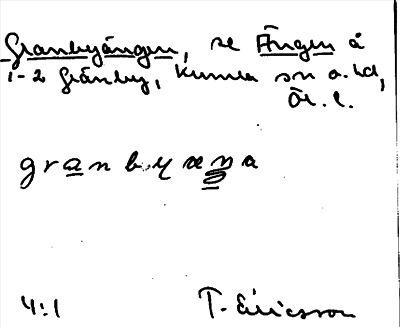 Granbyängen, se Ängen å
1-2 Gränby, Kumla sn o. hd,
Ör. l.
granbyæŋa
4:1 T. Ericsson